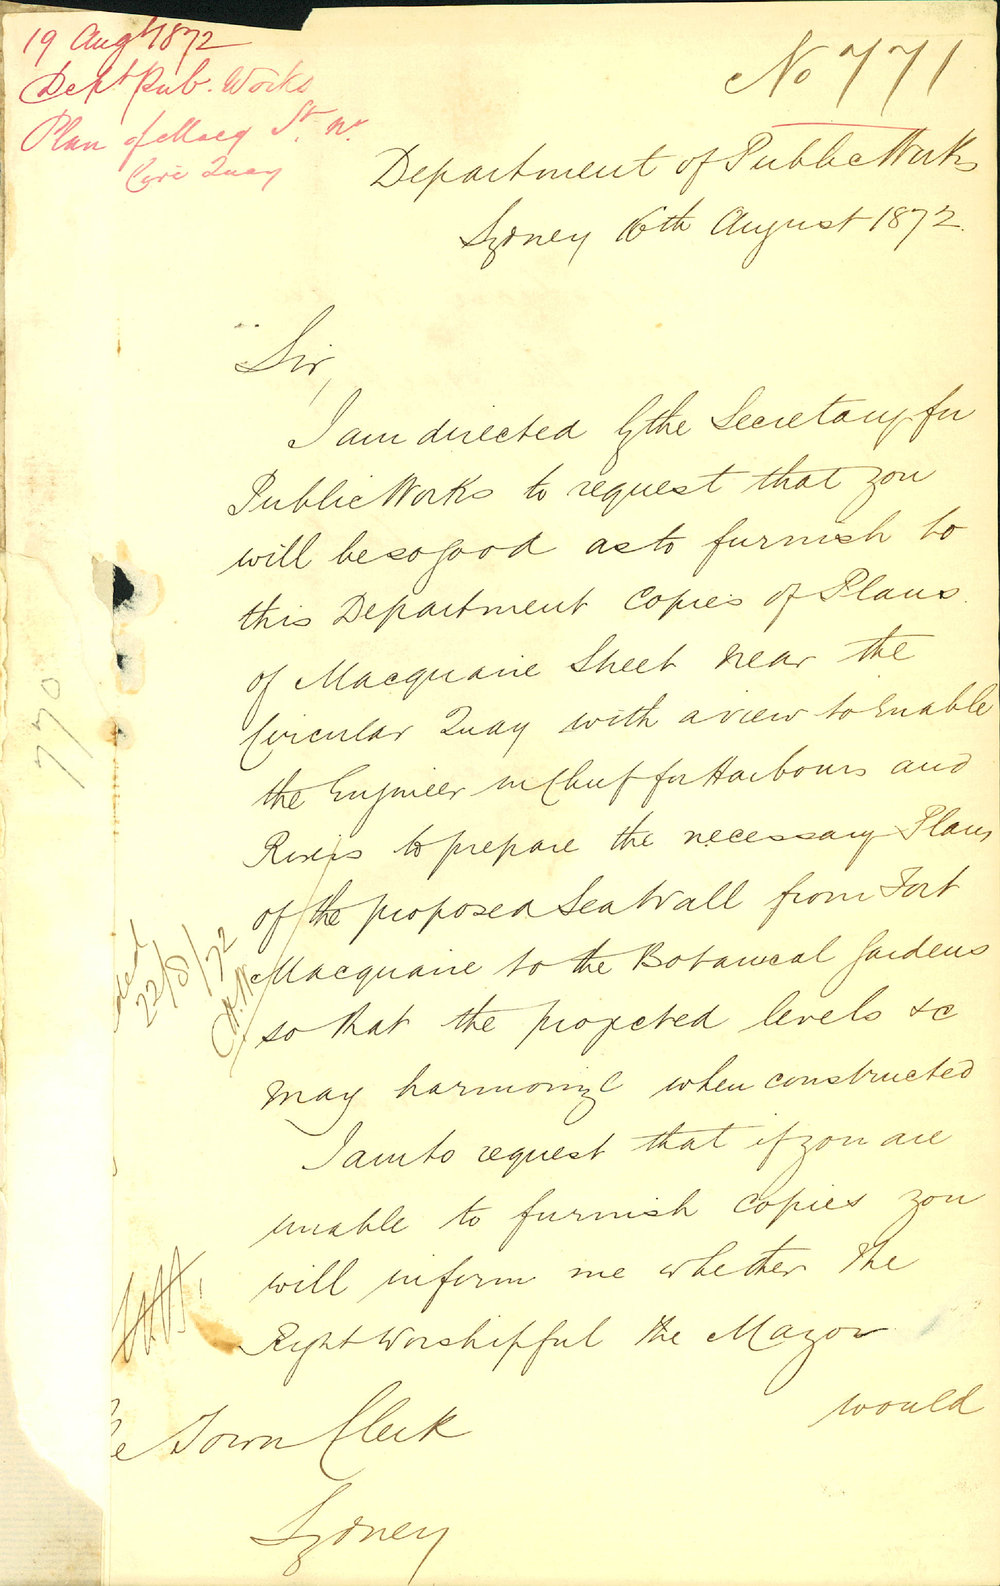 19 Augt 1872
Dept Pub. Works
Plan of Macq St. nr
Circ Quay
No 771
Department of Public Works
Sydney 16th August 1872.
Sir,
I am directed by the Secretary for
Public Works to request that you
will be so good as to furnish to
this Department Copies of Plans
of Macquarie Street near the
Circular Quay with a view to Enable
the Engineer in Chief for Harbours and
Rivers to prepare the necessary Plans
of the proposed Sea Wall from Fort
Macquarie to the Botanical Gardens
so that the projected levels &c
may harmonize when constructed
I am to request that if you are
unable to furnish copies you
will inform me whether the
Right Worshipful the Mayor
would
Town Clerk
Sydney
770
22/8/72